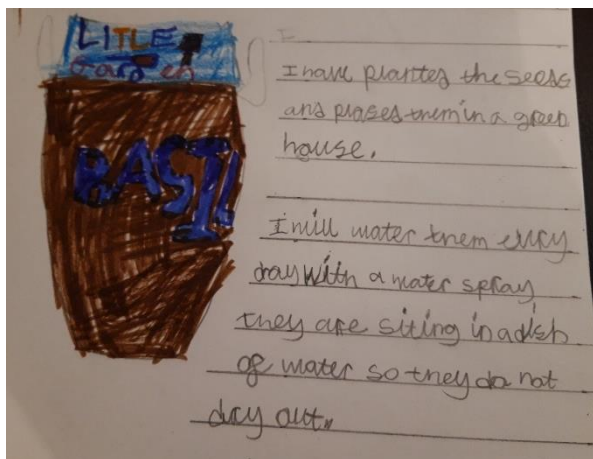 LITLE
Garden
BASIL
I have plantes the seess
and plases them in a green
house.
I will water them every
day with a water spray
they are siting in a dish
of water so they do not
dry out.